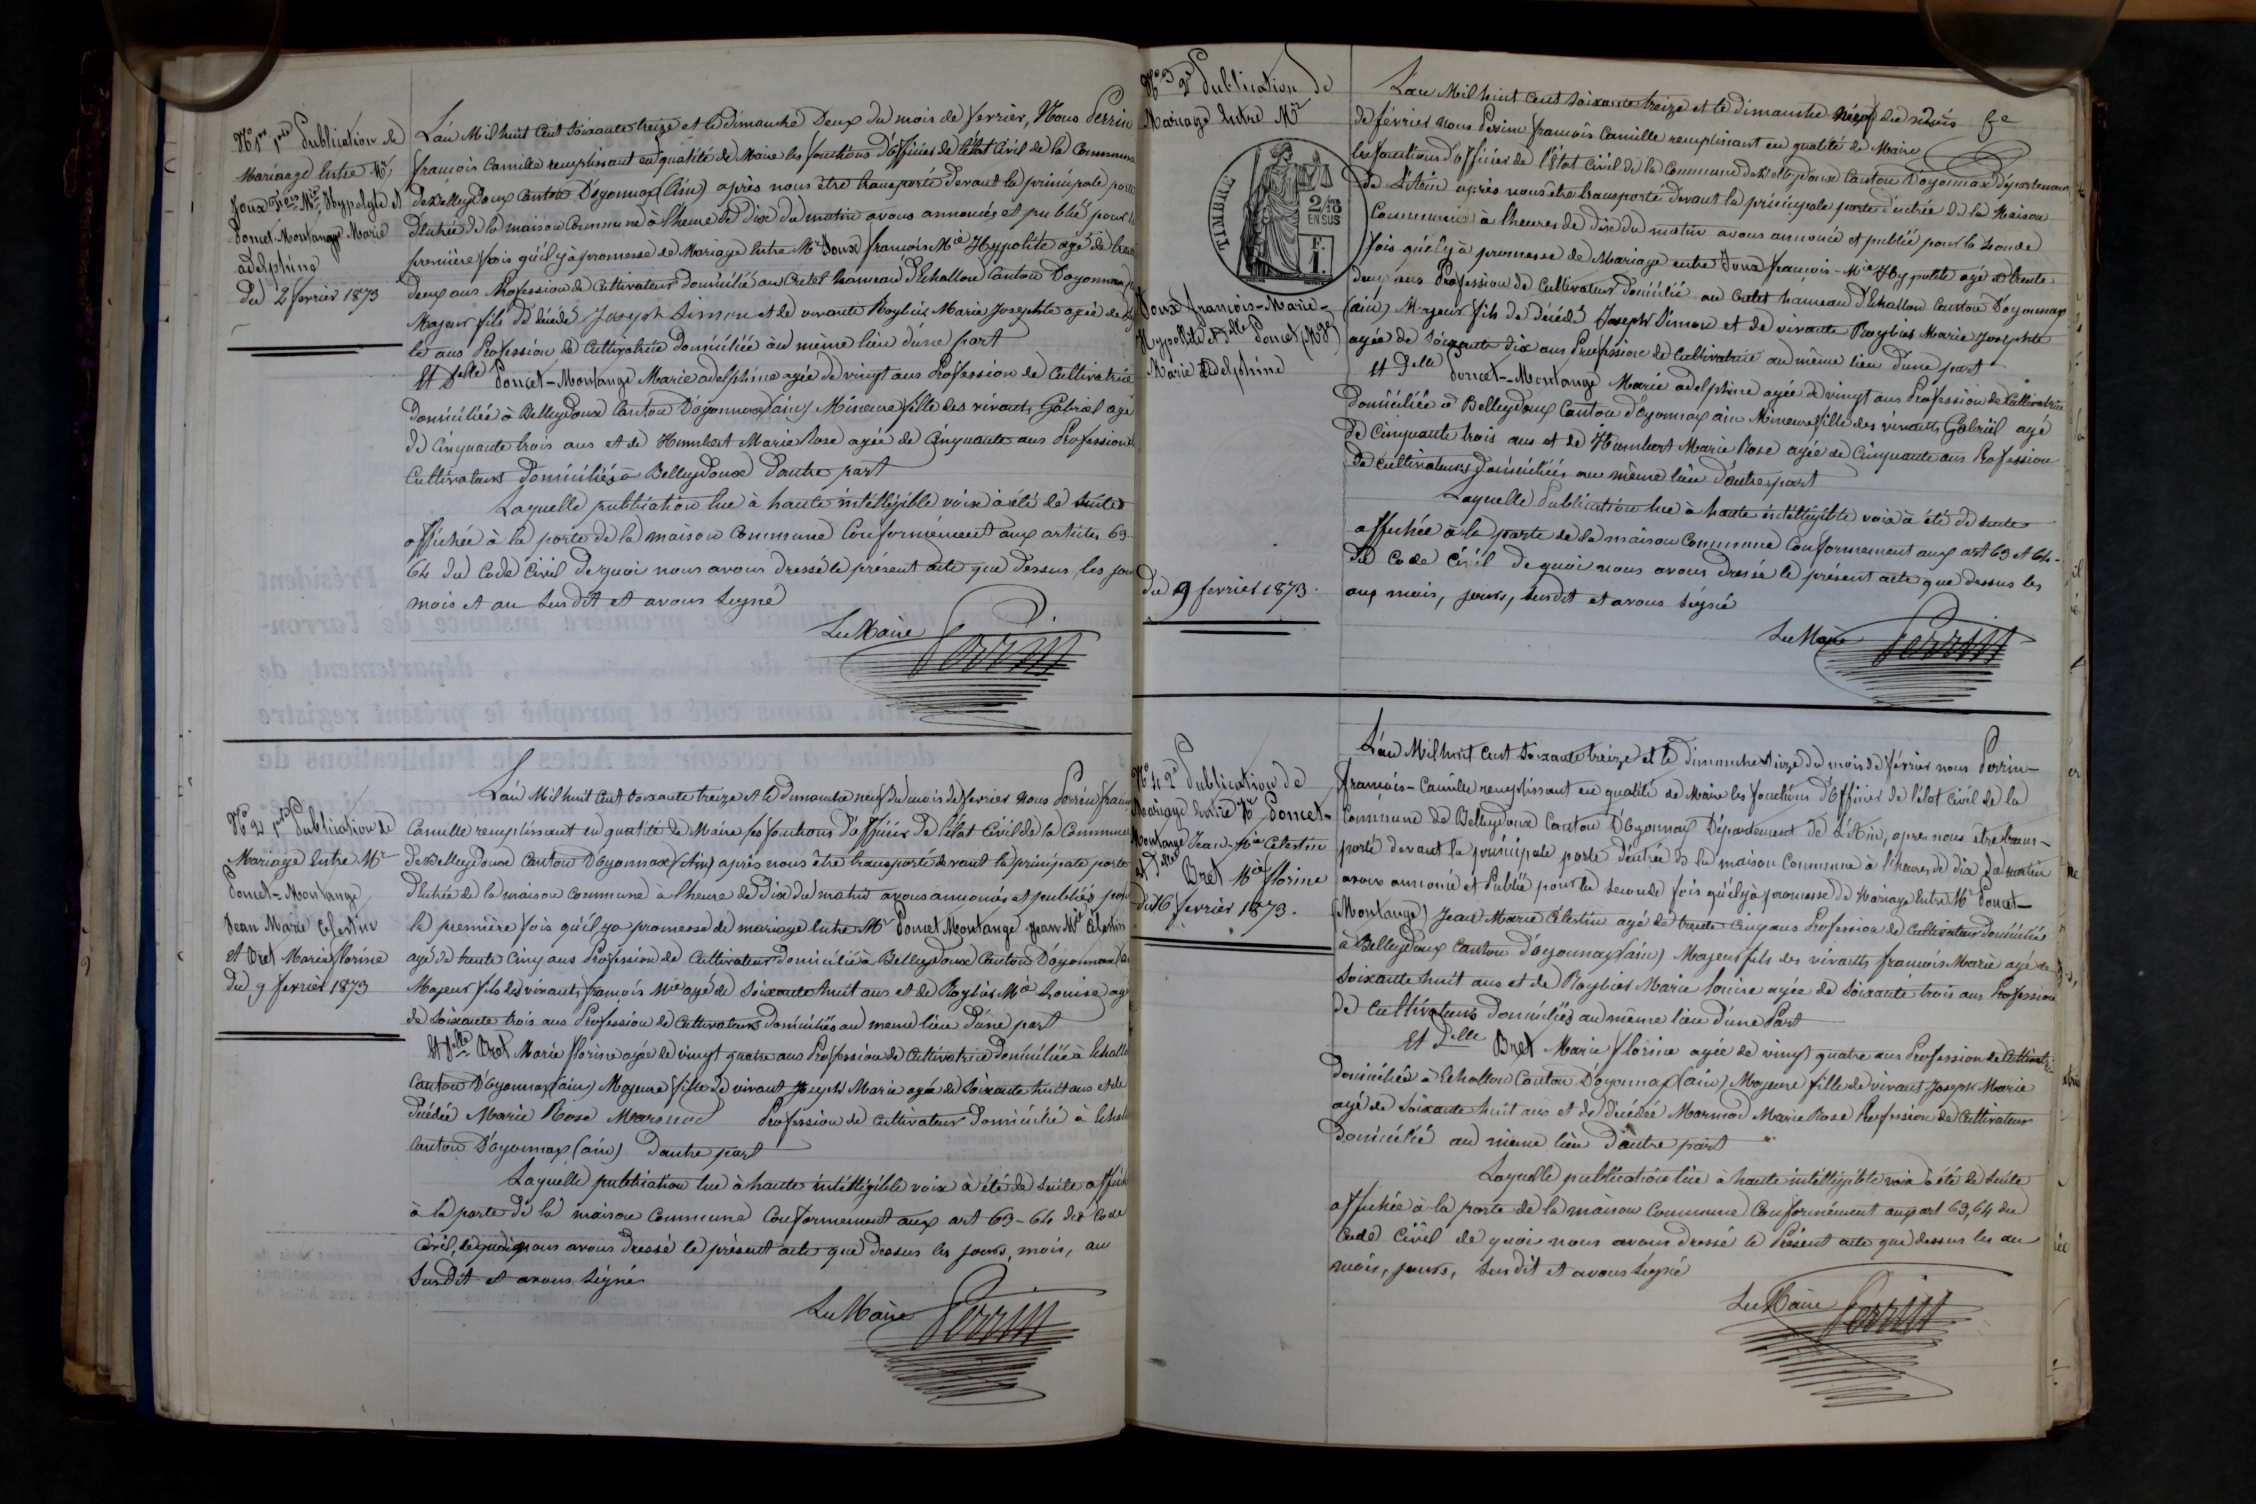 No 1er 1ère Publication de
Mariage Entre Mr
Joux Fçois Mie Hypolyte et
Poncet-Montange Marie
adelphine
du 2 fevrier 1873
L'an Mil huit cent soixante treize et le dimanche Deux du mois de fevrier, Nous Perrin
françois Camille remplissant en qualité de Maire les fonctions d'Officier de l'état Civil de la Commune
de Belleydoux Canton D'oyonnax (Ain) après nous être transporté devant la principale porte
d'entrée de la maison Commune à l'heure de dix du matin avons annoncés et publié pour la
première fois qu'il y à promesse de Mariage Entre Mr Joux françois Mie Hyppolite agé de trente
deux ans Profession de Cultivateur domicilié au Cretet hameau d'Echallon Canton D'oyonnax
Majeur fils de décédé Joseph Simon et de vivante Roybier Marie Josephte agée de
te ans Profession de Cultivatrice Domiciliée au même lieu d'une part
Et Delle Poncet-Montange Marie adelphine agée de vingt ans Profession de Cultivatrice
domiciliée à Belleydoux Canton D'oyonnax (ain) Mineure fille des vivants Gabriel agé
de Cinquante trois ans et de Humbert Marie Rose agée de Cinquante ans Profession
Cultivateurs Domiciliés à Belleydoux d'autre part
Laquelle publication lue à haute intélligible voix à été de suite
affichée à la porte de la maison Commune Conformément aux articles 63-
64 du Code Civil de quoi nous avons dressé le présent acte que dessus, les jour
mois et an susdit et avons signé
Le Maire Perrin
No 2 1ère Publication de
Mariage Entre Mr
Poncet-Montange
Jean Marie Celestin
Et Bret Marie florine
du 9 fevrier 1873
L'an Mil huit cent soixante treize et le dimanche neuf du mois de fevrier nous Perrin françois
Camille remplissant en qualité de Maire les fonctions d'officier de l'état Civil de la Commune
de Belleydoux Canton D'oyonnax (Ain) après nous être transporté devant la principale porte
d'entrée de la maison Commune à l'heure de dix du matin avons annoncés et publiés pour
la première fois qu'il y a promesse de mariage Entre Mr Poncet Montange Jean Mie Célestin
agé de trente Cinq ans Profession de Cultivateur domicilié à Belleydoux Canton D'oyonnax
Majeur fils des vivants françois Mie agé de soixante huit ans et de Roybier Mie Louise agée
de soixante trois ans Profession de Cultivateurs Domiciliés au meme lieu d'une part
Et Delle Bret Marie florine agée de vingt quatre ans Profession de Cultivatrice Domiciliée à Echallon
Canton D'oyonnax (ain) Majeure fille de vivant Joseph Marie agé de soixante huit ans et de
décédée Marie Rose Marmod Profession de Cultivateur Domicilié à Echallon
Canton D'oyonnax (ain) d'autre part
Laquelle publication lue à haute intélligible voix à été de suite affichée
à la porte de la maison Commune Conformement aux art 63-64 du Code
Civil, de quoi nous avons dressé le présent acte que dessus les jours, mois, an
susdit et avons signé
Le Maire Perrin
No 3 2e Publication de
Mariage Entre Mr
TIMBRE
2/10
EN SUS
F.
1.
Joux françois-Marie-
Hyppolite et Delle Poncet (Mge)
Marie Adelphine
du 9 fevrier 1873.
L'an Mil huit cent soixante treize et le dimanche neuf du mois
de février nous Perrin françois Camille remplissant en qualité de Maire
les fonctions d'officier de l'Etat Civil de la Commune de Belleydoux Canton D'oyonnax département
de L'Ain après nous être transporté devant la principale porte d'entrée de la Maison
Commune à l'heure de dix du matin avons annoncé et publié pour la seconde
fois qu'il y à promesse de Mariage entre Joux françois-Mie Hyppolite agé de trente
deux ans Profession de Cultivateur Domicilié au Cretet hameau d'Echallon Canton D'oyonnax
(ain) Majeur fils de décédé Joseph Simon et de vivante Roybier Marie Josephte
agée de soixante dix ans Profession de Cultivatrice au même lieu d'une part
Et Delle Poncet-Montange Marie adelphine agée de vingt ans Profession de Cultivatrice
Domiciliée à Belleydoux Canton d'oyonnax ain Mineure fille des vivants Gabriël agé
de Cinquante trois ans et de Humbert Marie Rose agée de Cinquante ans Profession
de Cultivateurs Domiciliés au même lieu d'autre part
Laquelle Publication lue à haute intélligible voix à été de suite
affichée à la porte de la maison Commune Conformement aux art 63 et 64-
du Code Civil de quoi nous avons dressé le présent acte que dessus les
an, mois, jours, susdit et avons signé
Le Maire Perrin
No 4 2e Publication de
Mariage Entre Mr Poncet-
Montange Jean Mie Celestin
et Delle
Bret Mie florine
du 16 fevrier 1873.
L'an Mil huit cent soixante treize et le dimanche seize du mois de février nous Perrin-
françois-Camille remplissant en qualité de Maire les fonctions d'Officier de l'état Civil de la
Commune de Belleydoux Canton D'oyonnax Département de L'Ain, après nous être trans-
porté devant la principale porte d'entrée de la maison Commune à l'heure de dix du matin
avons annoncé et Publié pour la seconde fois qu'il y à promesse de Mariage Entre Mr Poncet-
(Montange) Jean Marie Célestin agé de trente cinq ans Profession de Cultivateur domicilié
à Belleydoux Canton d'oyonnax (ain) Majeur fils des vivants françois Marie agé de
soixante huit ans et de Roybier Marie Louise agée de soixante trois ans Profession
de Cultivateurs Domiciliés au même lieu d'une Part
Et Delle Bret Marie florine agée de vingt quatre ans Profession de Cultivatrice
Domiciliée à Echallon Canton D'oyonnax (ain) Majeure fille de vivant Joseph Marie
agé de soixante huit ans et de décédée Marmod Marie Rose Profession de Cultivateur
Domicilié au même lieu d'autre part
Laquelle publication lue à haute intélligible voix à été de suite
affichée à la porte de la maison Commune Conformément aux art 63, 64 du
Code Civil de quoi nous avons dressé le Présent acte que dessus les an
mois, jours, susdit et avons signé
Le Maire Perrin